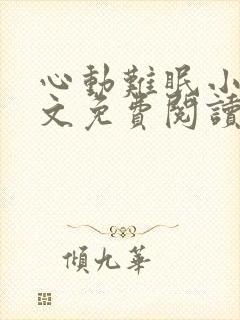 心動難眠小
文免費閱讀
傾九華